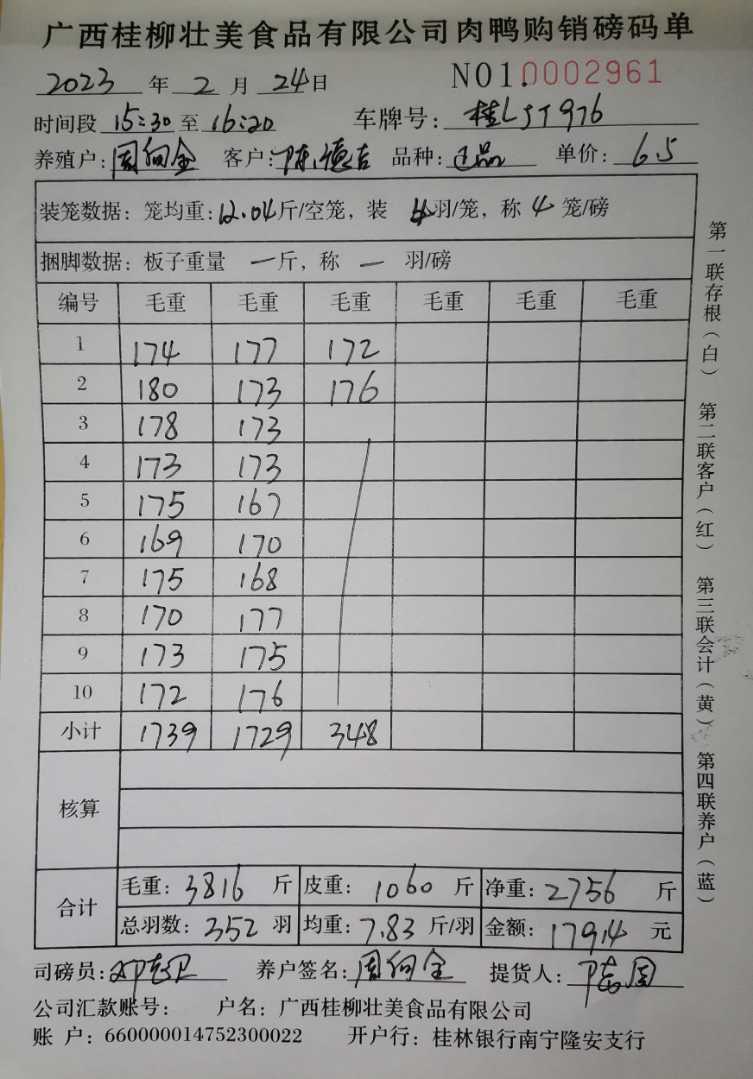 广西桂柳壮美食品有限公司肉鸭购销磅码单
2023 年 2 月 24 日 NO1.0002961
时间段 15:30 至 16:20 车牌号: 桂LJT976
养殖户: 周何全 客户: 陈德吉 品种: 正品 单价: 6.5
装笼数据: 笼均重: 12.04 斤/空笼, 装 4 羽/笼, 称 4 笼/磅
捆脚数据: 板子重量 一 斤, 称 一 羽/磅
编号 毛重 毛重 毛重 毛重 毛重 毛重
1 174 177 172
2 180 173 176
3 178 173
4 173 173
5 175 167
6 169 170
7 175 168
8 170 177
9 173 175
10 172 176
小计 1739 1729 348
核算
合计 毛重: 3816 斤 皮重: 1060 斤 净重: 2756 斤
总羽数: 352 羽 均重: 7.83 斤/羽 金额: 17914 元
司磅员: 养户签名: 周何全 提货人:
公司汇款账号: 户名: 广西桂柳壮美食品有限公司
账 户: 660000014752300022 开户行: 桂林银行南宁隆安支行
第一联存根(白) 第二联客户(红) 第三联会计(黄) 第四联养户(蓝)